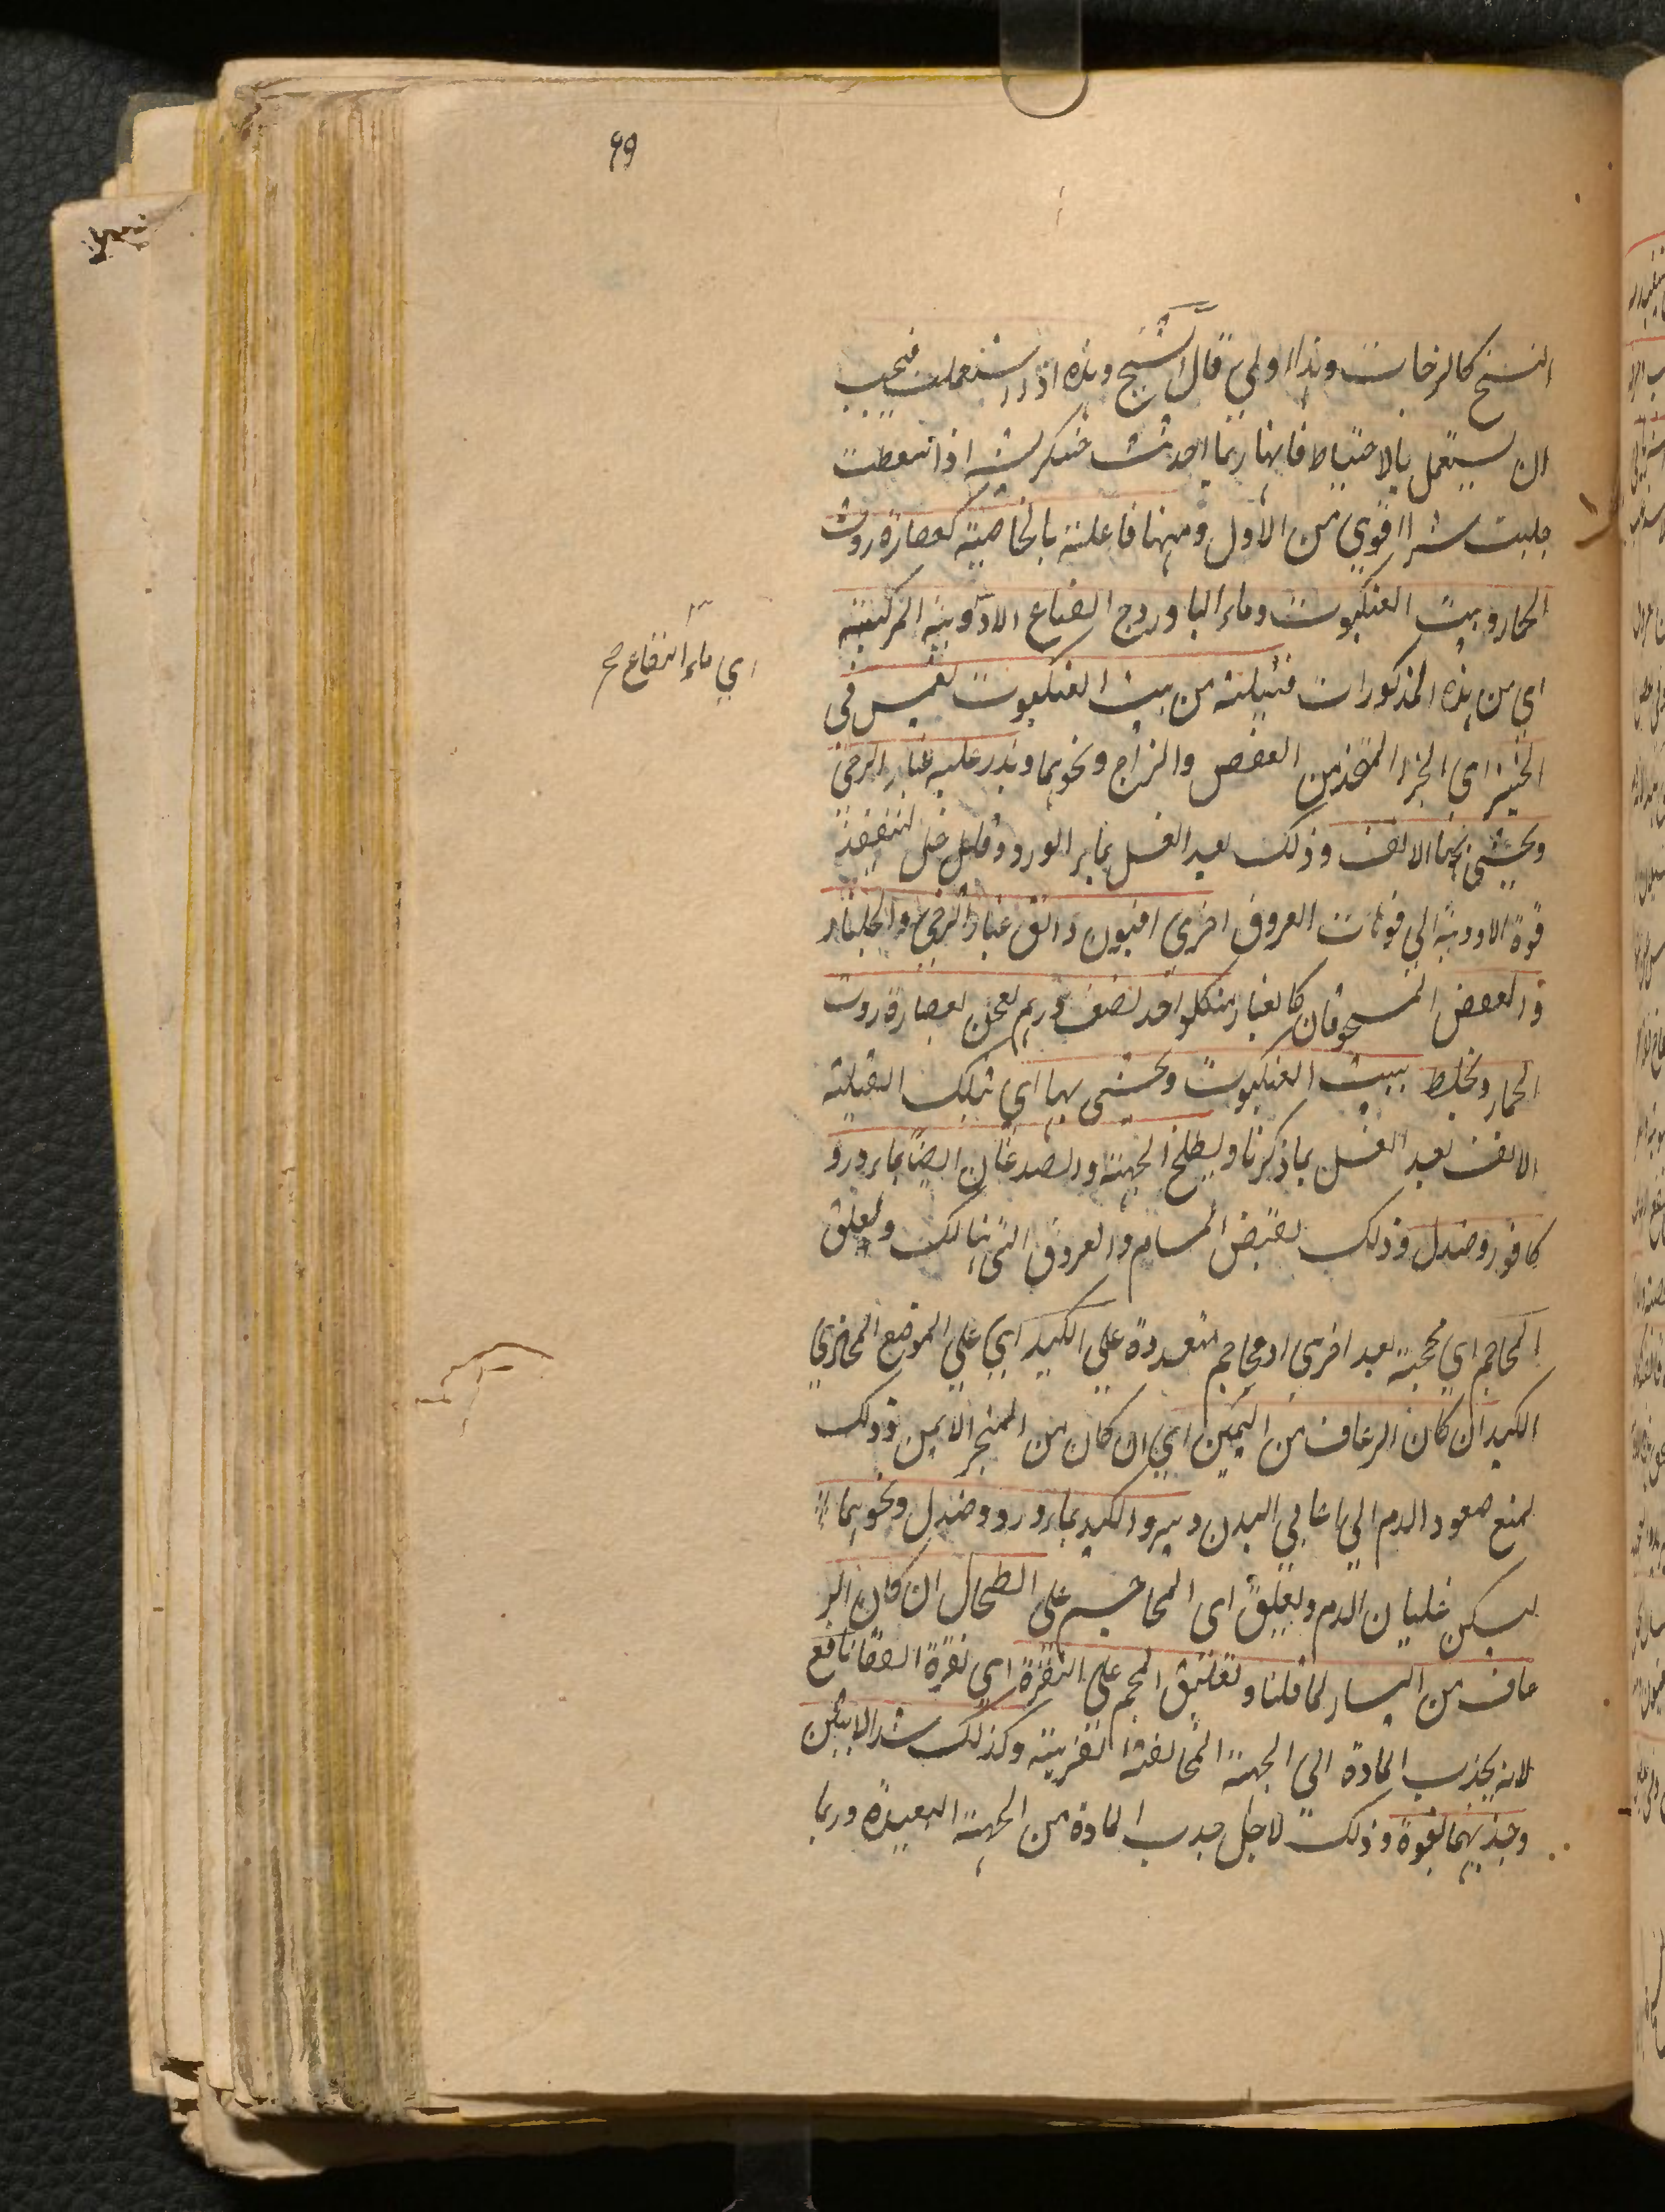 99
النسخ كالزجات وهذا اولي قال الشيخ وهذه اذا استعملت فيجب
ان يستعمل بالاحتياط فانها ربما احدثت خشكريشه اذا سقطت
جلبت شرا اقوي من الاول ومنها فاعلة بالخاصية كعصارة روث
الحمار وبيت العنكبوت وماء الباوروج النعناع الادوية المركبة
اي ماء النعناع صح
اي من هذه المذكورات فتيلة من بيت العنكبوت تغمس في
الحبر اي الحبر المتخذ من العفص والزاج ونحوهما ويذر عليه غبار الرحي
ويحشي بها الانف وذلك بعد الغسل بماء الورد وقليل خل لتنفيذ
قوة الادوية الي فوهات العروق اخري افيون دانق غبار الرحي والجلنار
والعفص المسحوقان كالغبار من كل واحد نصف درهم تعجن بعصارة روث
الحمار وتخلط ببيت العنكبوت ويحشي بها اي بتلك الفتيلة
الانف بعد الغسل بما ذكرنا ويطلي الجبهة والصدغان ايضا بماء ورد و
كافور وصندل وذلك لقبض المسام والعروق التي هنالك ويعلق
المحاجم اي محجمة بعد اخري او محاجم متعددة علي الكبد اي علي الموضع المحاذي
الكبد ان كان الرعاف من اليمين اي ان كان من المنخر الايمن وذلك
لمنع صعود الدم الي اعالي البدن ويبرد الكبد بماء ورد وصندل ونحوهما
ليسكن غليان الدم ويعلق اي المحاجم علي الطحال ان كان الر
عاف من اليسار لما قلنا وتعليق المحجم علي النقرة اي نقرة القفا نافع
لانه يجذب المادة الي الجهة المخالفة القريبة وكذلك شد الابيثين
وجذبهما بقوة وذلك لاجل جذب المادة من الجهة البعيدة وربما